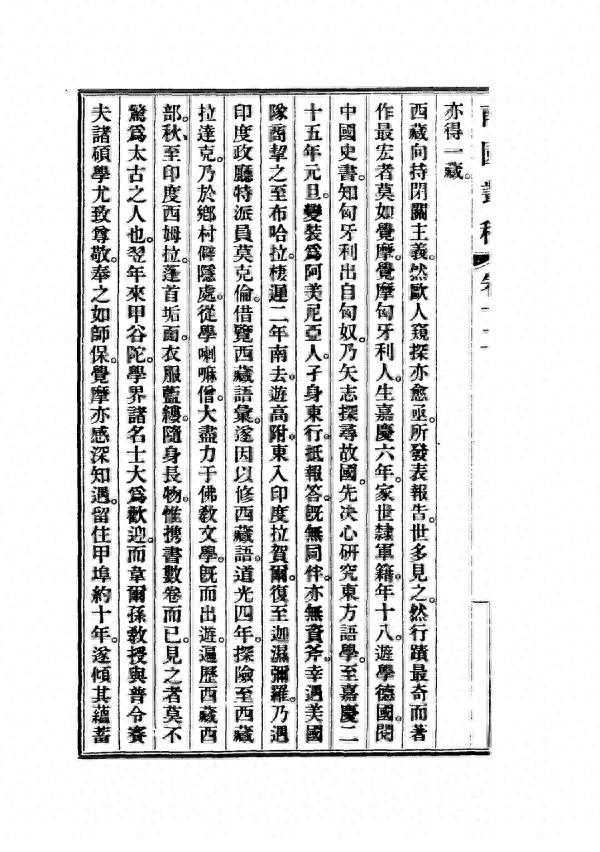 亦得一藏。
西藏向持閉關主義。然歐人窺探亦愈亟。所發表報告。世多見之。然行蹟最奇而著
作最宏者。莫如覺摩。覺摩匈牙利人。生嘉慶六年。家世隸軍籍。年十八。遊學德國。閱
中國史書。知匈牙利出自匈奴。乃矢志探尋故國。先决心研究東方語學。至嘉慶二
十五年元旦。變裝爲阿美尼亞人。孑身東行。抵報答。旣無同伴。亦無資斧。幸遇美國
隊商。挈之至布哈拉。棲遲二年。南去遊高附。東入印度拉賀爾。復至迦濕彌羅。乃遇
印度政廳特派員莫克倫。借覽西藏語彙。遂因以修西藏語。道光四年。探險至西藏
拉達克。乃於鄉村僻隱處。從學喇嘛僧。大盡力于佛敎文學。旣而出遊。遍歷西藏西
部。秋、至印度西姆拉。蓬首垢面。衣服藍縷。隨身長物。惟携書數卷而已。見之者莫不
驚爲太古之人也。翌年來甲谷陀。學界諸名士大爲歡迎。而韋爾孫敎授與普令賽
夫諸碩學尤致尊敬。奉之如師保。覺摩亦感深知遇。留住甲埠約十年。遂傾其蘊蓄